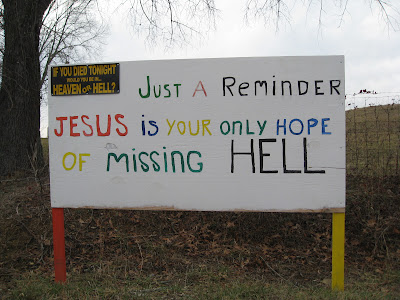 IF YOU DIED TONIGHT
WOULD YOU BE IN...
HEAVEN OR HELL?
JUST A REMINDER
JESUS iS YOUR ONLY HOPE
OF miSSiNG HELL